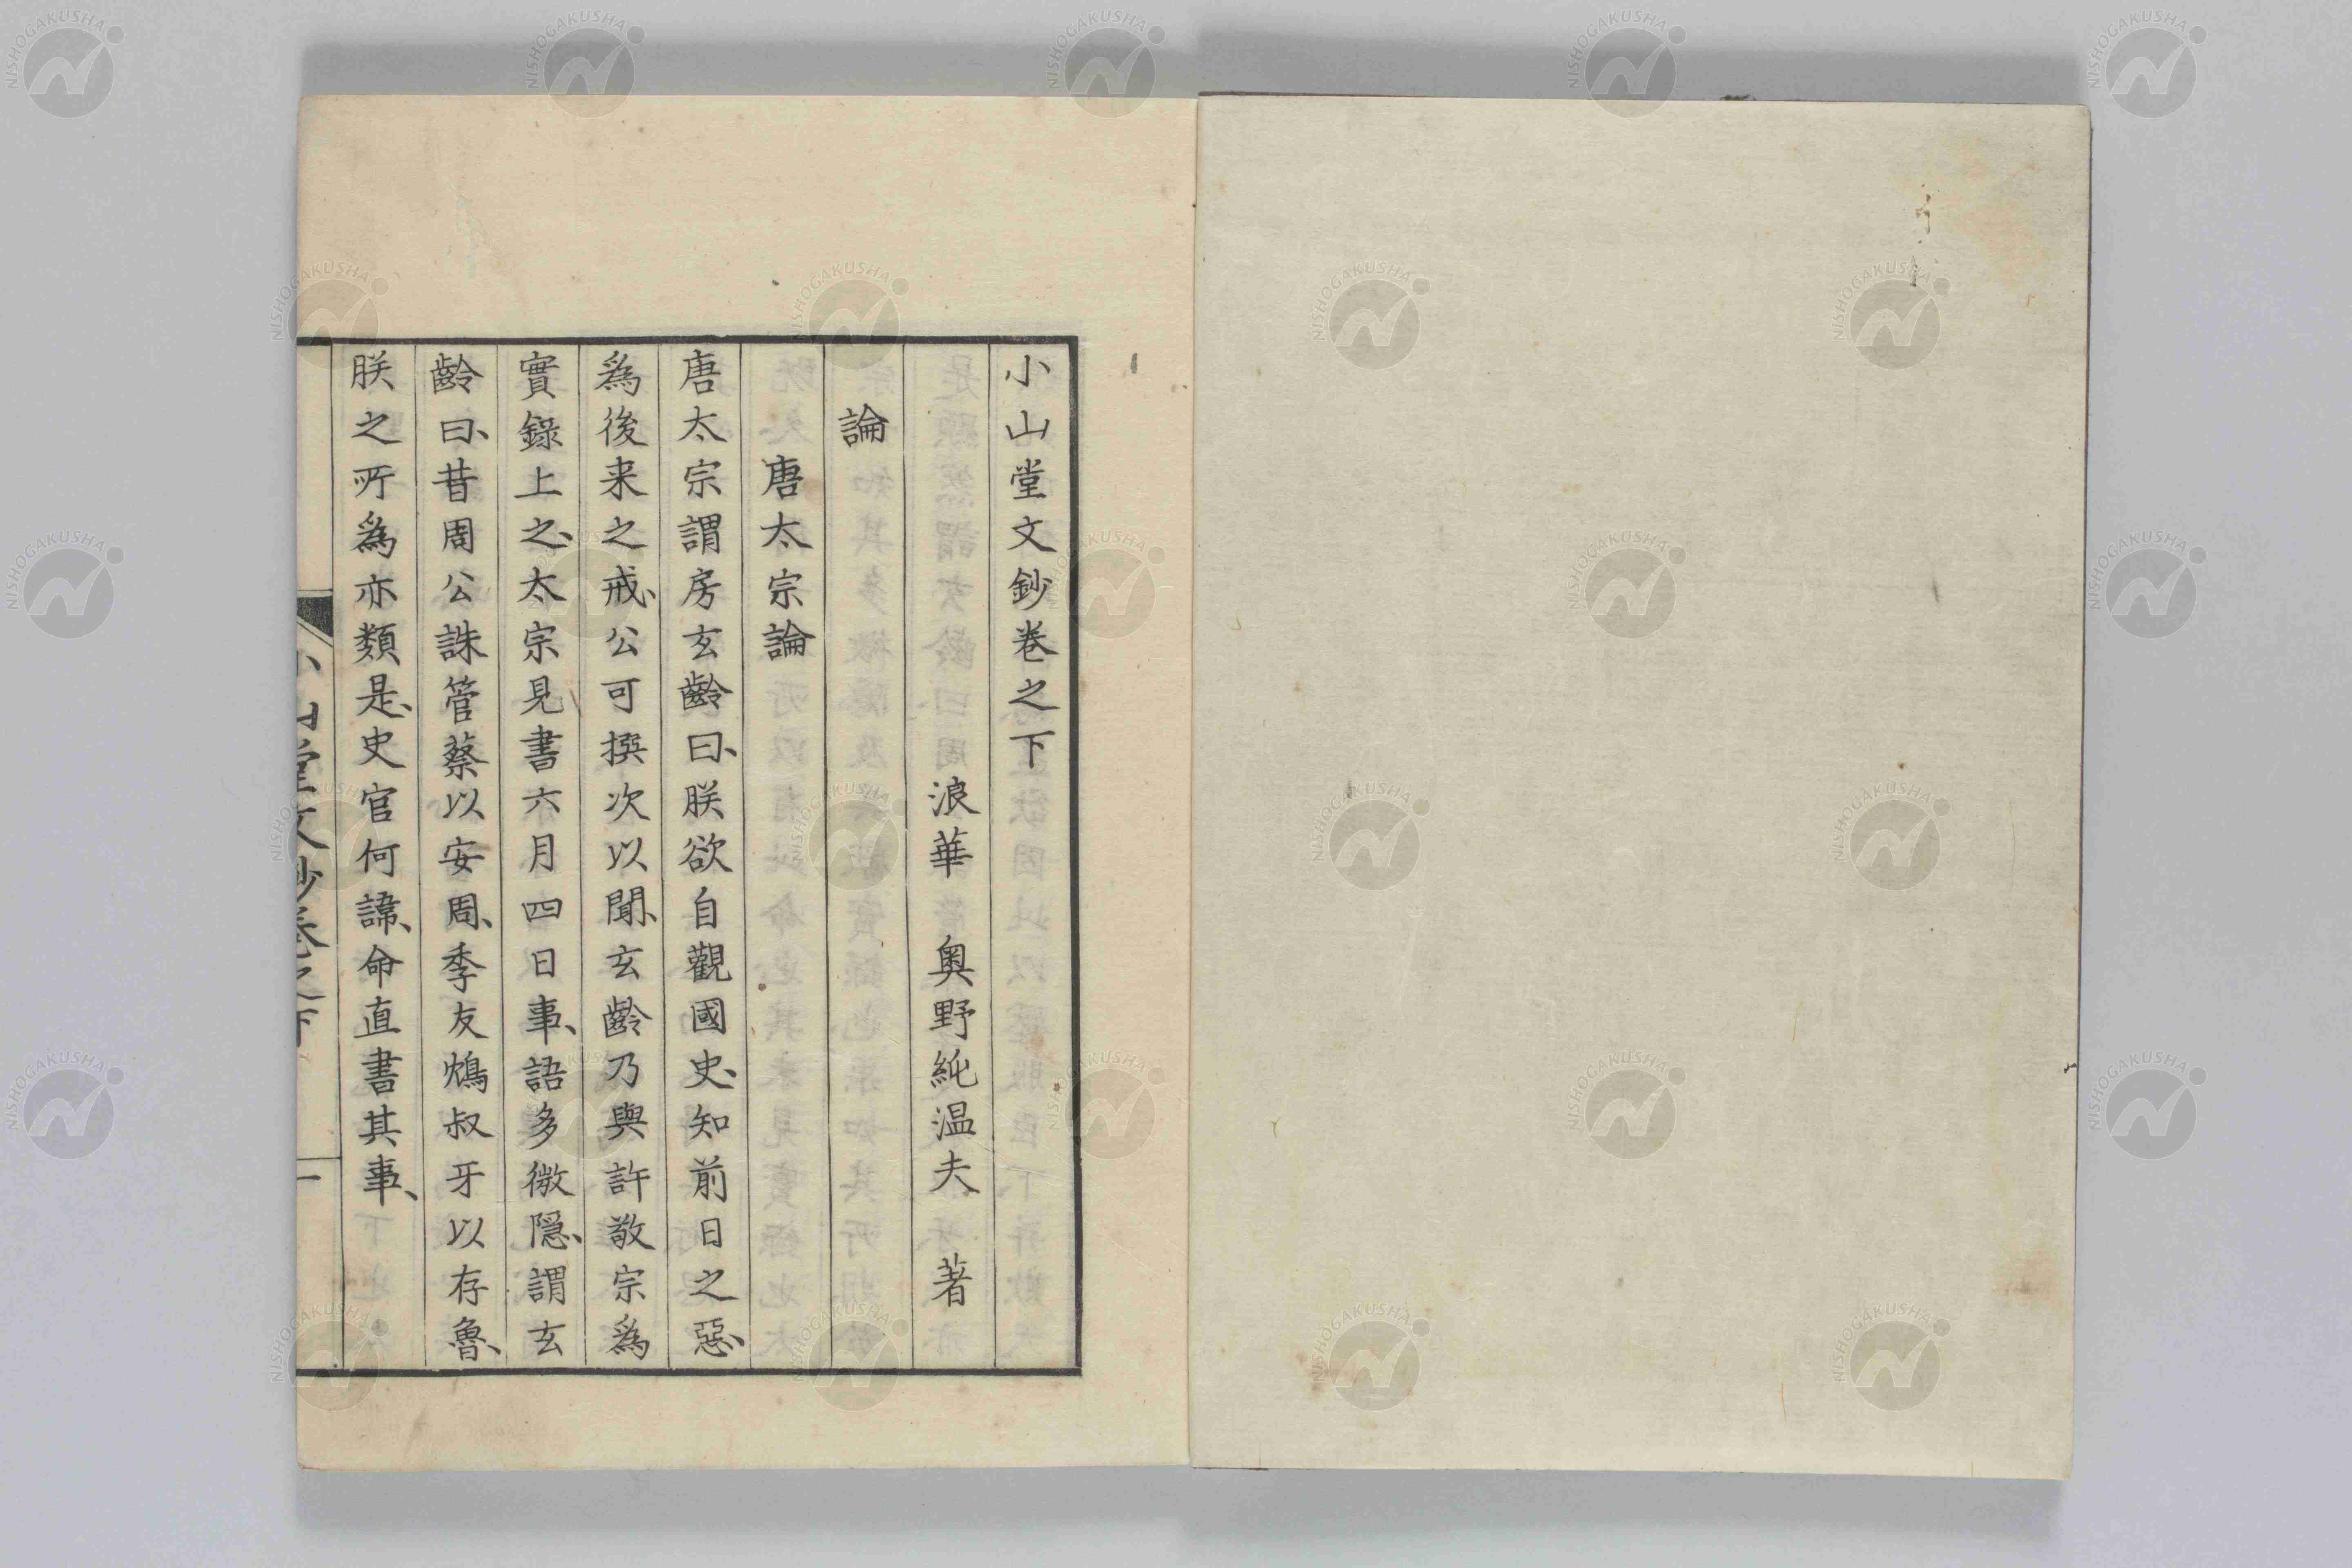 小山堂文鈔卷之下
浪華 奥野純温夫 著
論
唐太宗論
唐太宗謂房玄齡曰、朕欲自觀國史、知前日之惡、
爲後来之戒、公可撰次以聞、玄齡乃與許敬宗爲
實錄上之、太宗見書六月四日事、語多微隠、謂玄
齡曰、昔周公誅管蔡以安周、季友鴆叔牙以存魯、
朕之所爲亦類是、史官何諱、命直書其事、
小山堂文鈔卷之下 一
NISHOGAKUSHA